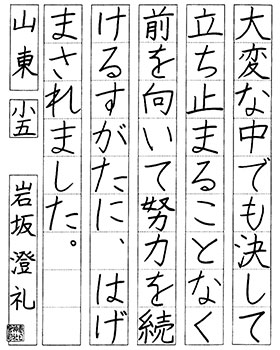 大変な中でも決して
立ち止まることなく
前を向いて努力を続
けるすがたに、はげ
まされました。
山東 小五 岩坂澄礼